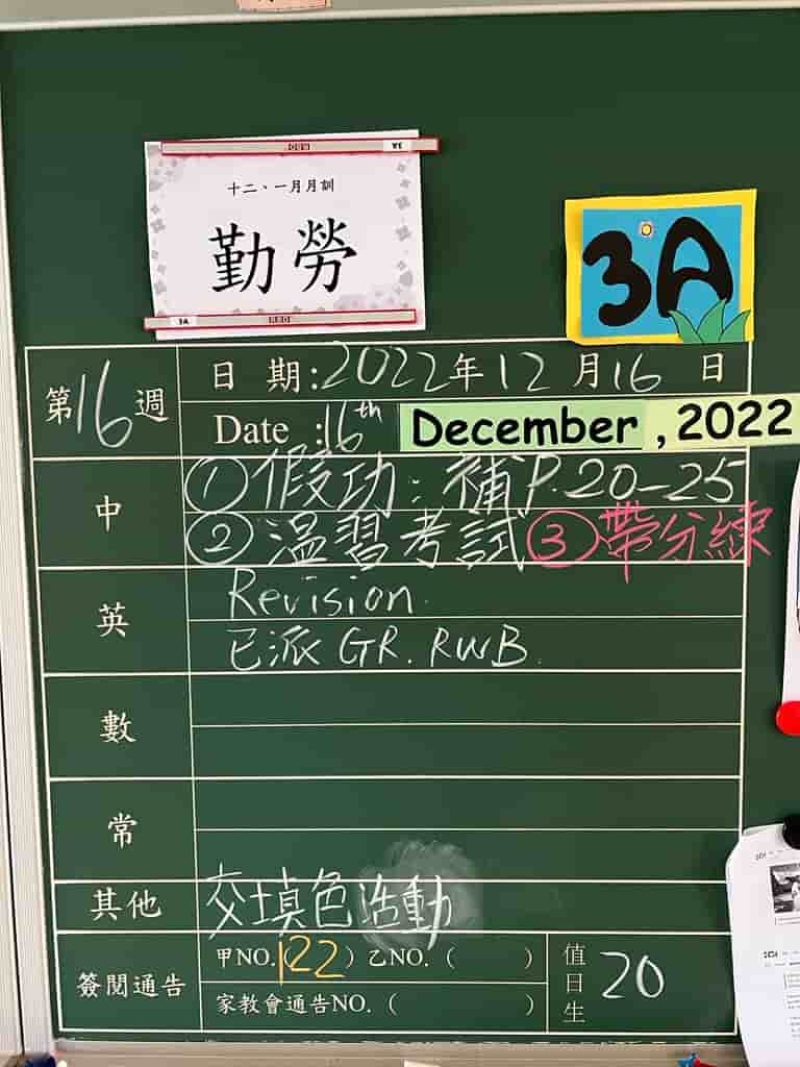 十二、一月月訓
勤勞
3A
第16週
日 期:2022年12月16日
Date :16th December , 2022
中
①假功：補P.20-25
②溫習考試③帶分練
英
Revision.
已派 GR. RWB.
數
常
其他
交填色活動
簽閱通告
甲NO.(122) 乙NO. ( )
家教會通告NO. ( )
值日生
20